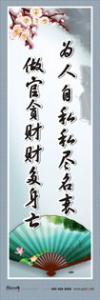 为人自私私尽名末
做官贪财财多身亡